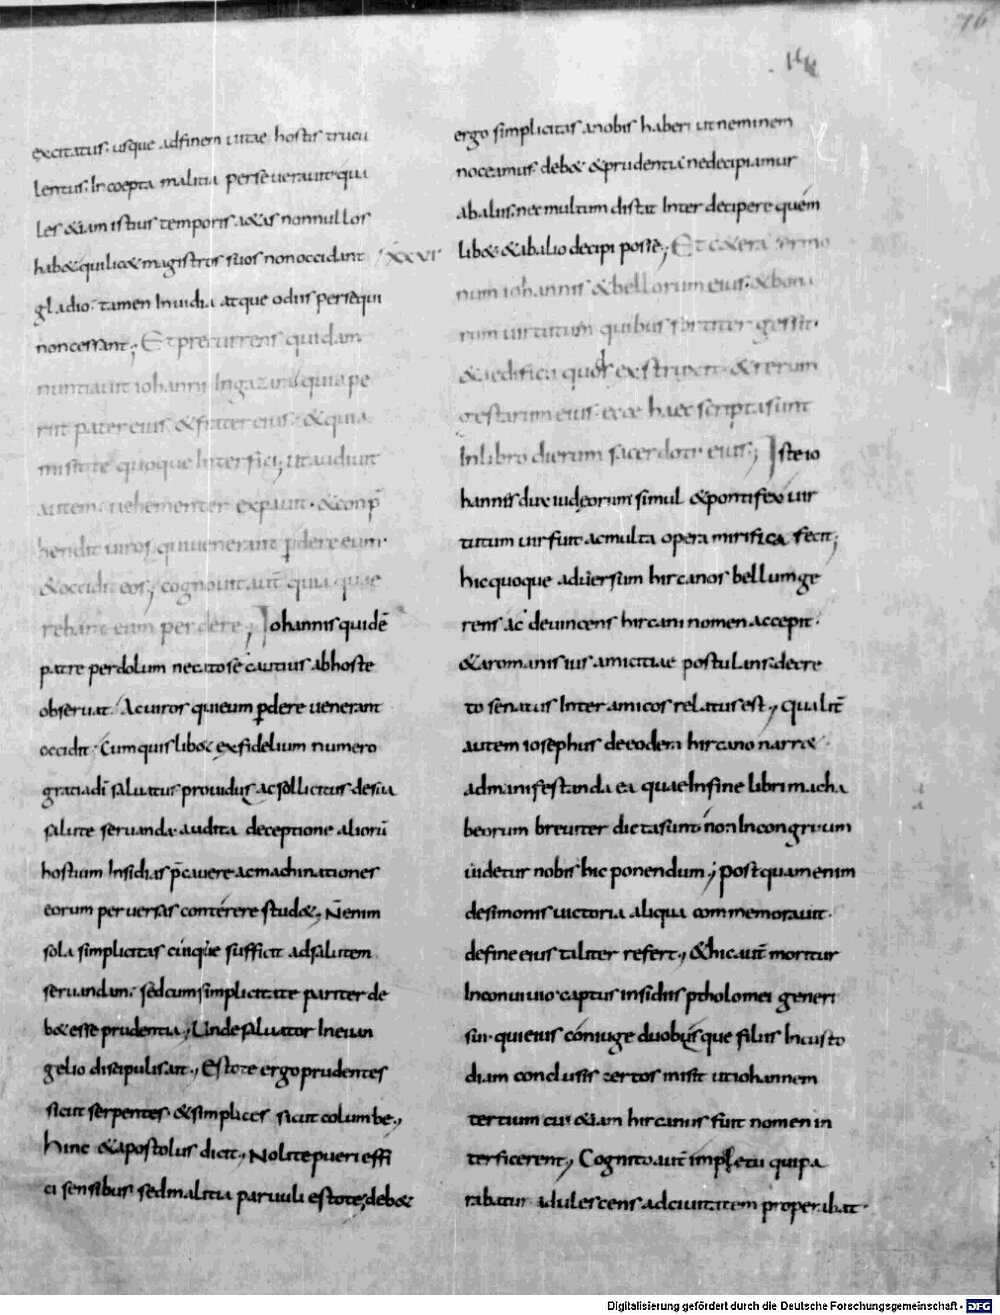 76
excitatus. usque adfinem uitae hostis trucu
lentus. Incoepta malitia perseuerauit. qua
les &iam istius temporis a&as nonnullos
hab& qui lic& magistros suos non occidant
XXVI
gladio. tamen Inuidia atque odiis persequi
noncessant; Et precurrens quidam
nuntiauit iohanni Ingazara quia pe
riit pater eius. &frater eius. &quia
misit te quoque Interfici; ut audiuit
autem. uehementer expauit. &conp̄
hendit uiros qui uenerant ꝑdere eum.
&occidit eos; cognouit aut̄ quia quae
rebant eum perdere; Iohannis quidē
patre per dolum necato se cautius abhoste
obseruat. Ac uiros qui eum ꝑdere uenerant
occidit. Cum quis lib& ex fidelium numero
gratia dī saluatus prouidus ac sollicitus desua
salute seruanda. audita deceptione aliorū
hostium Insidias p̄cauere ac machinationes
eorum peruersas conterere stud&; N̄enim
sola simplicitas cuique sufficit adsalutem
seruandam. sed cum simplicitate pariter de
b& esse prudentia; Unde saluator In euan
gelio discipulis ait; Estote ergo prudentes
sicut serpentes. &simplices sicut columbe;
hinc &apostolus dicit; Nolite pueri effi
ci sensibus sed malitia paruuli estote; deb&
ergo simplicitas anobis haberi ut neminem
noceamus. deb& &prudentia ne decipiamur
ab aliis. nec multum distat Inter decipere quem
lib& &ab alio decipi posse; Et c&era sermo
num iohannis &bellorum eius. &boni
rum uirtutum quibus fortiter gessit.
&aedificia quod exstruxit. &rerum
gestarum eius. ecce haec scripta sunt
In libro dierum sacerdotii eius; Iste io
hannis dux iudeorum simul &pontifex uir
tutum uir fuit ac multa opera mirifica fecit;
hic quoque aduersum hircanos bellum ge
rens ac deuincens hircani nomen accepit.
&aromanis ius amicitiae postulans. decre
to senatus Inter amicos relatus est; qualit̄
autem iosephus de eodem hircano narr&
ad manifestanda ea quae In fine libri macha
beorum breuiter dicta sunt non Incongruum
uidetur nobis hic ponendum; postquam enim
de simonis uictoria aliqua commemorauit.
de fine eius taliter refert; &hic aut̄ moritur
In conuiuio. captus insidiis ptholomei generi
sui. qui eius coniuge duobusque filiis In custo
diam conclusis certos misit ut iohannem
tertium cui &iam hircanus fuit nomen in
terficerent; Cognito aut̄ impetu qui pa
rabatur adulescens ad ciuitatem properabat.
Digitalisierung gefördert durch die Deutsche Forschungsgemeinschaft - DFG